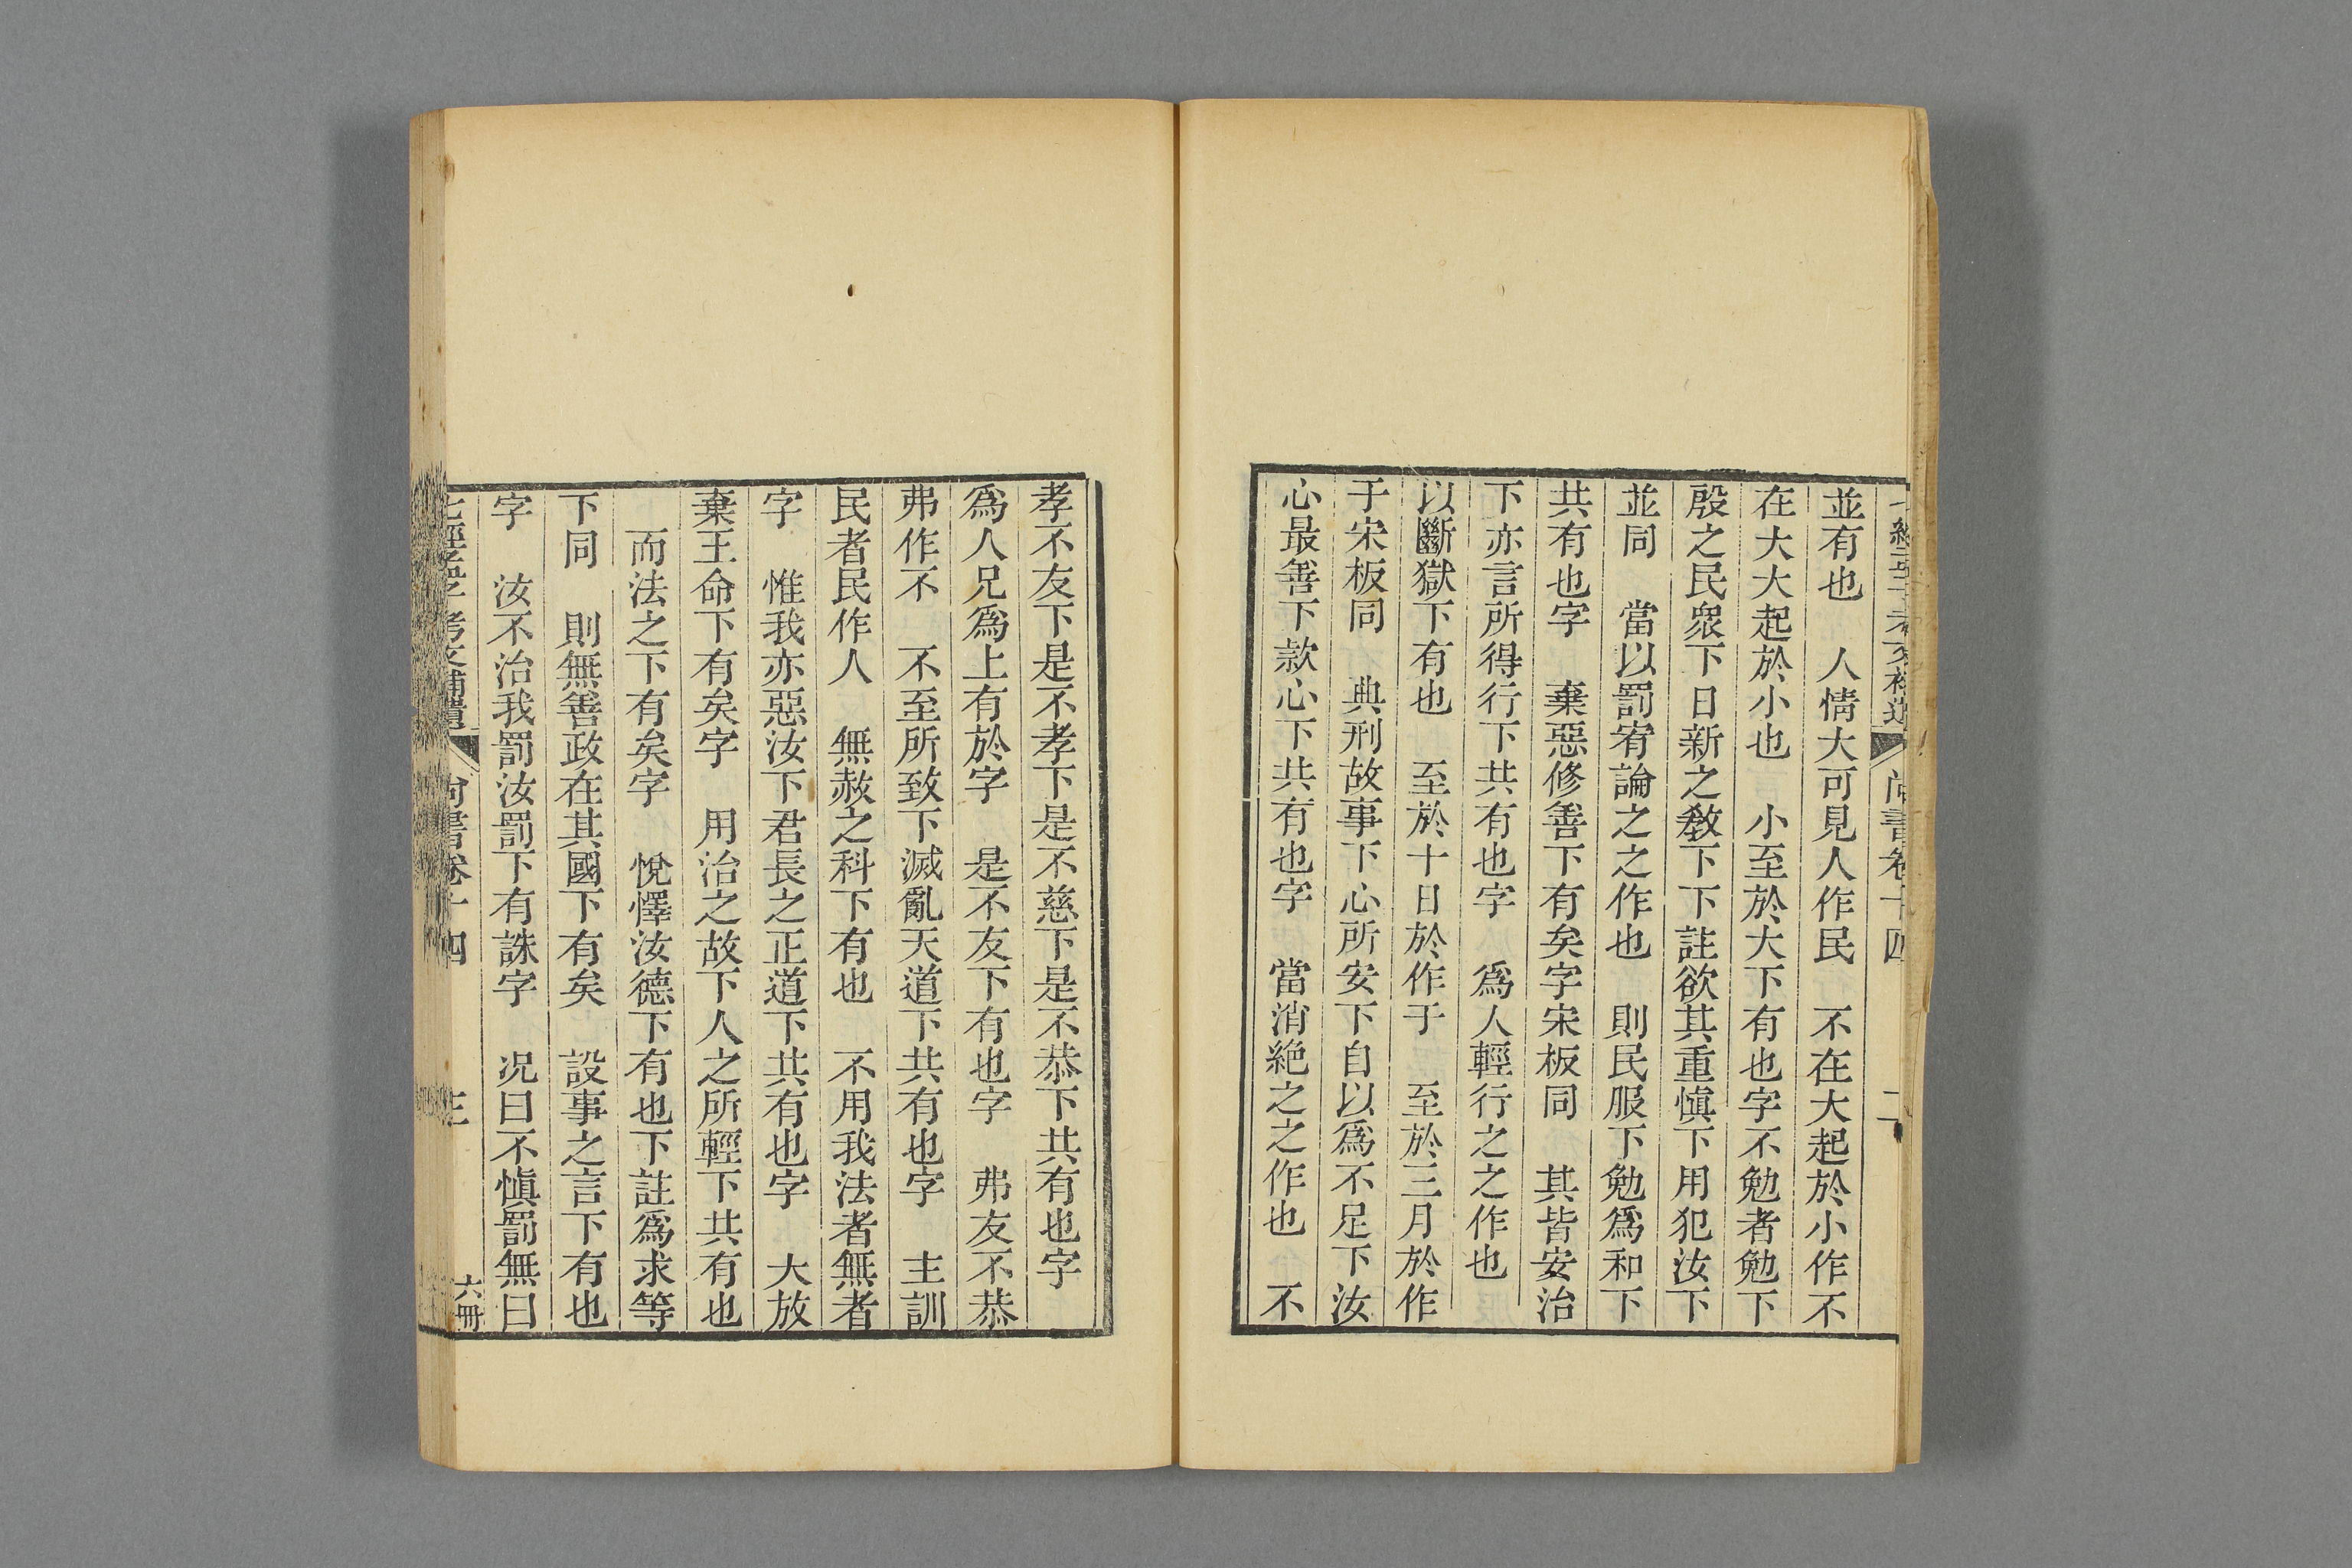 並有也　人情大可見人作民　不在大起於小作不
在大大起於小也　小至於大下有也字不勉者勉下
殷之民衆下日新之敎下下註欲其重愼下用犯汝下
並同　當以罰宥論之之作也　則民服下勉爲和下
共有也字　棄惡修善下有矣字宋板同　其皆安治
下亦言所得行下共有也字　爲人輕行之之作也
以斷獄下有也　至於十日於作于　至於三月於作
于宋板同　典刑故事下心所安下自以爲不足下汝
心最善下款心下共有也字　當消絶之之作也　不
孝不友下是不孝下是不慈下是不恭下共有也字
爲人兄爲上有於字　是不友下有也字　弗友不恭
弗作不　不至所致下滅亂天道下共有也字　主訓
民者民作人　無赦之科下有也　不用我法者無者
字　惟我亦惡汝下君長之正道下共有也字　大放
棄王命下有矣字　用治之故下人之所輕下共有也
而法之下有矣字　悅懌汝德下有也下註爲求等
下同　則無善政在其國下有矣　設事之言下有也
字　汝不治我罰汝罰下有誅字　况曰不愼罰無曰
七經孟子考文補遺　尚書卷十四　三　六冊